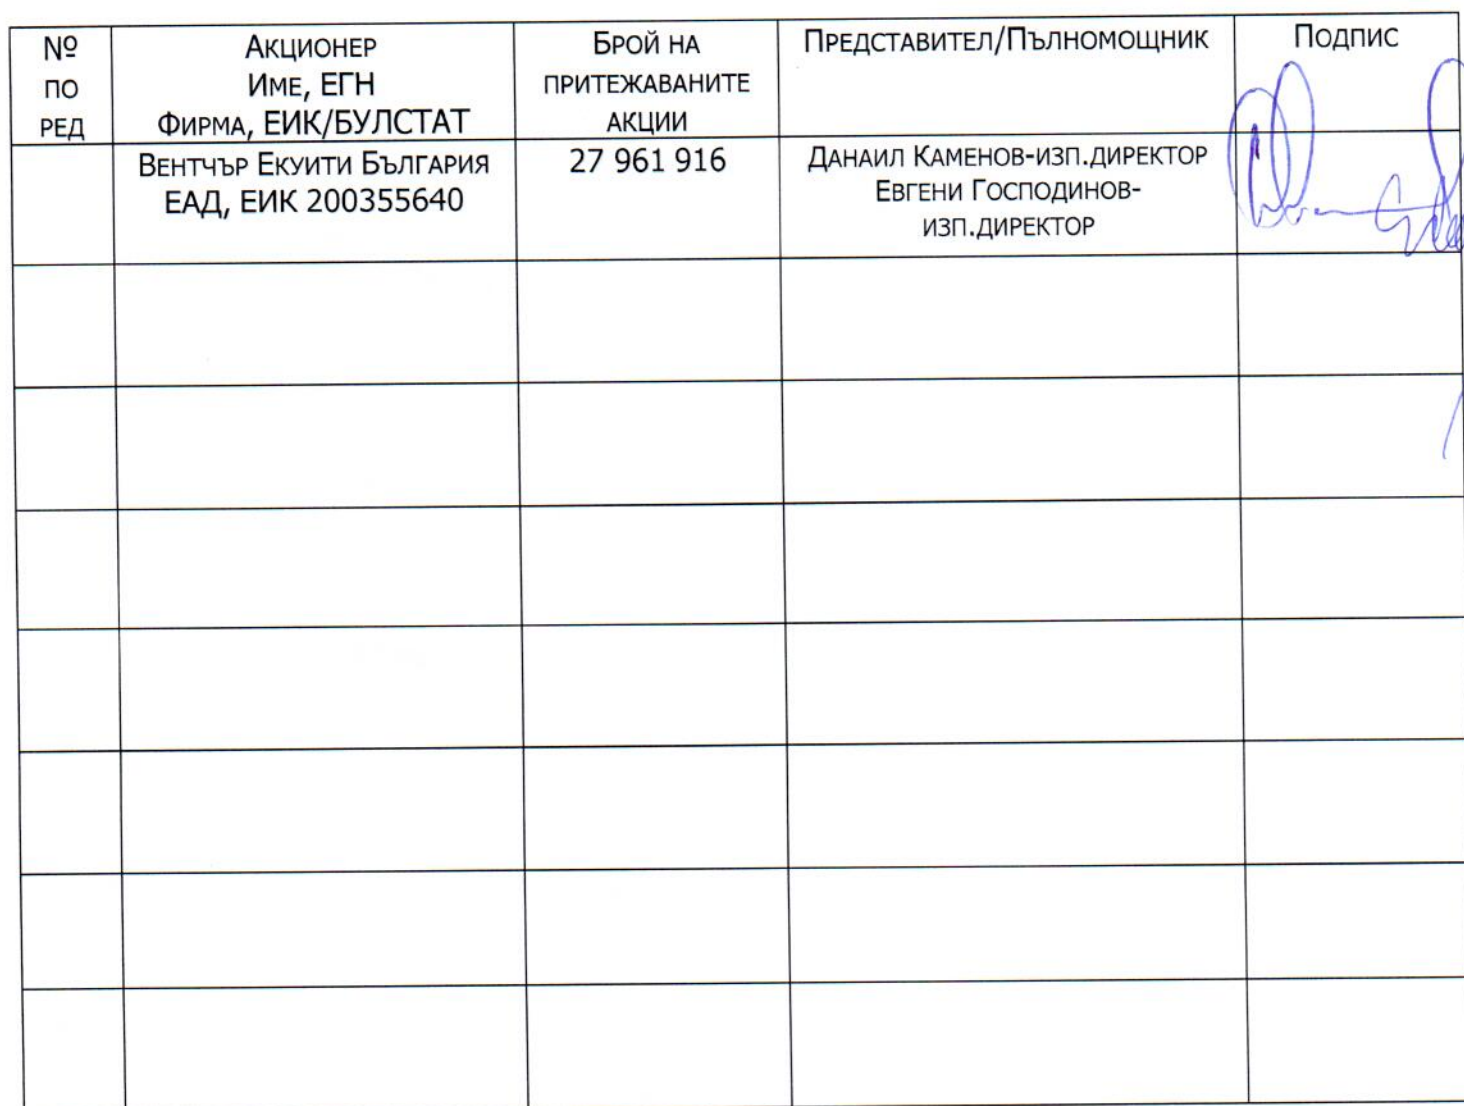 №
по
ред
Акционер
Име, ЕГН
Фирма, ЕИК/БУЛСТАТ
Брой на
притежаваните
акции
Представител/Пълномощник
Подпис
Вентчър Екуити България
ЕАД, ЕИК 200355640
27 961 916
Данаил Каменов-изп.директор
Евгени Господинов-
изп.директор